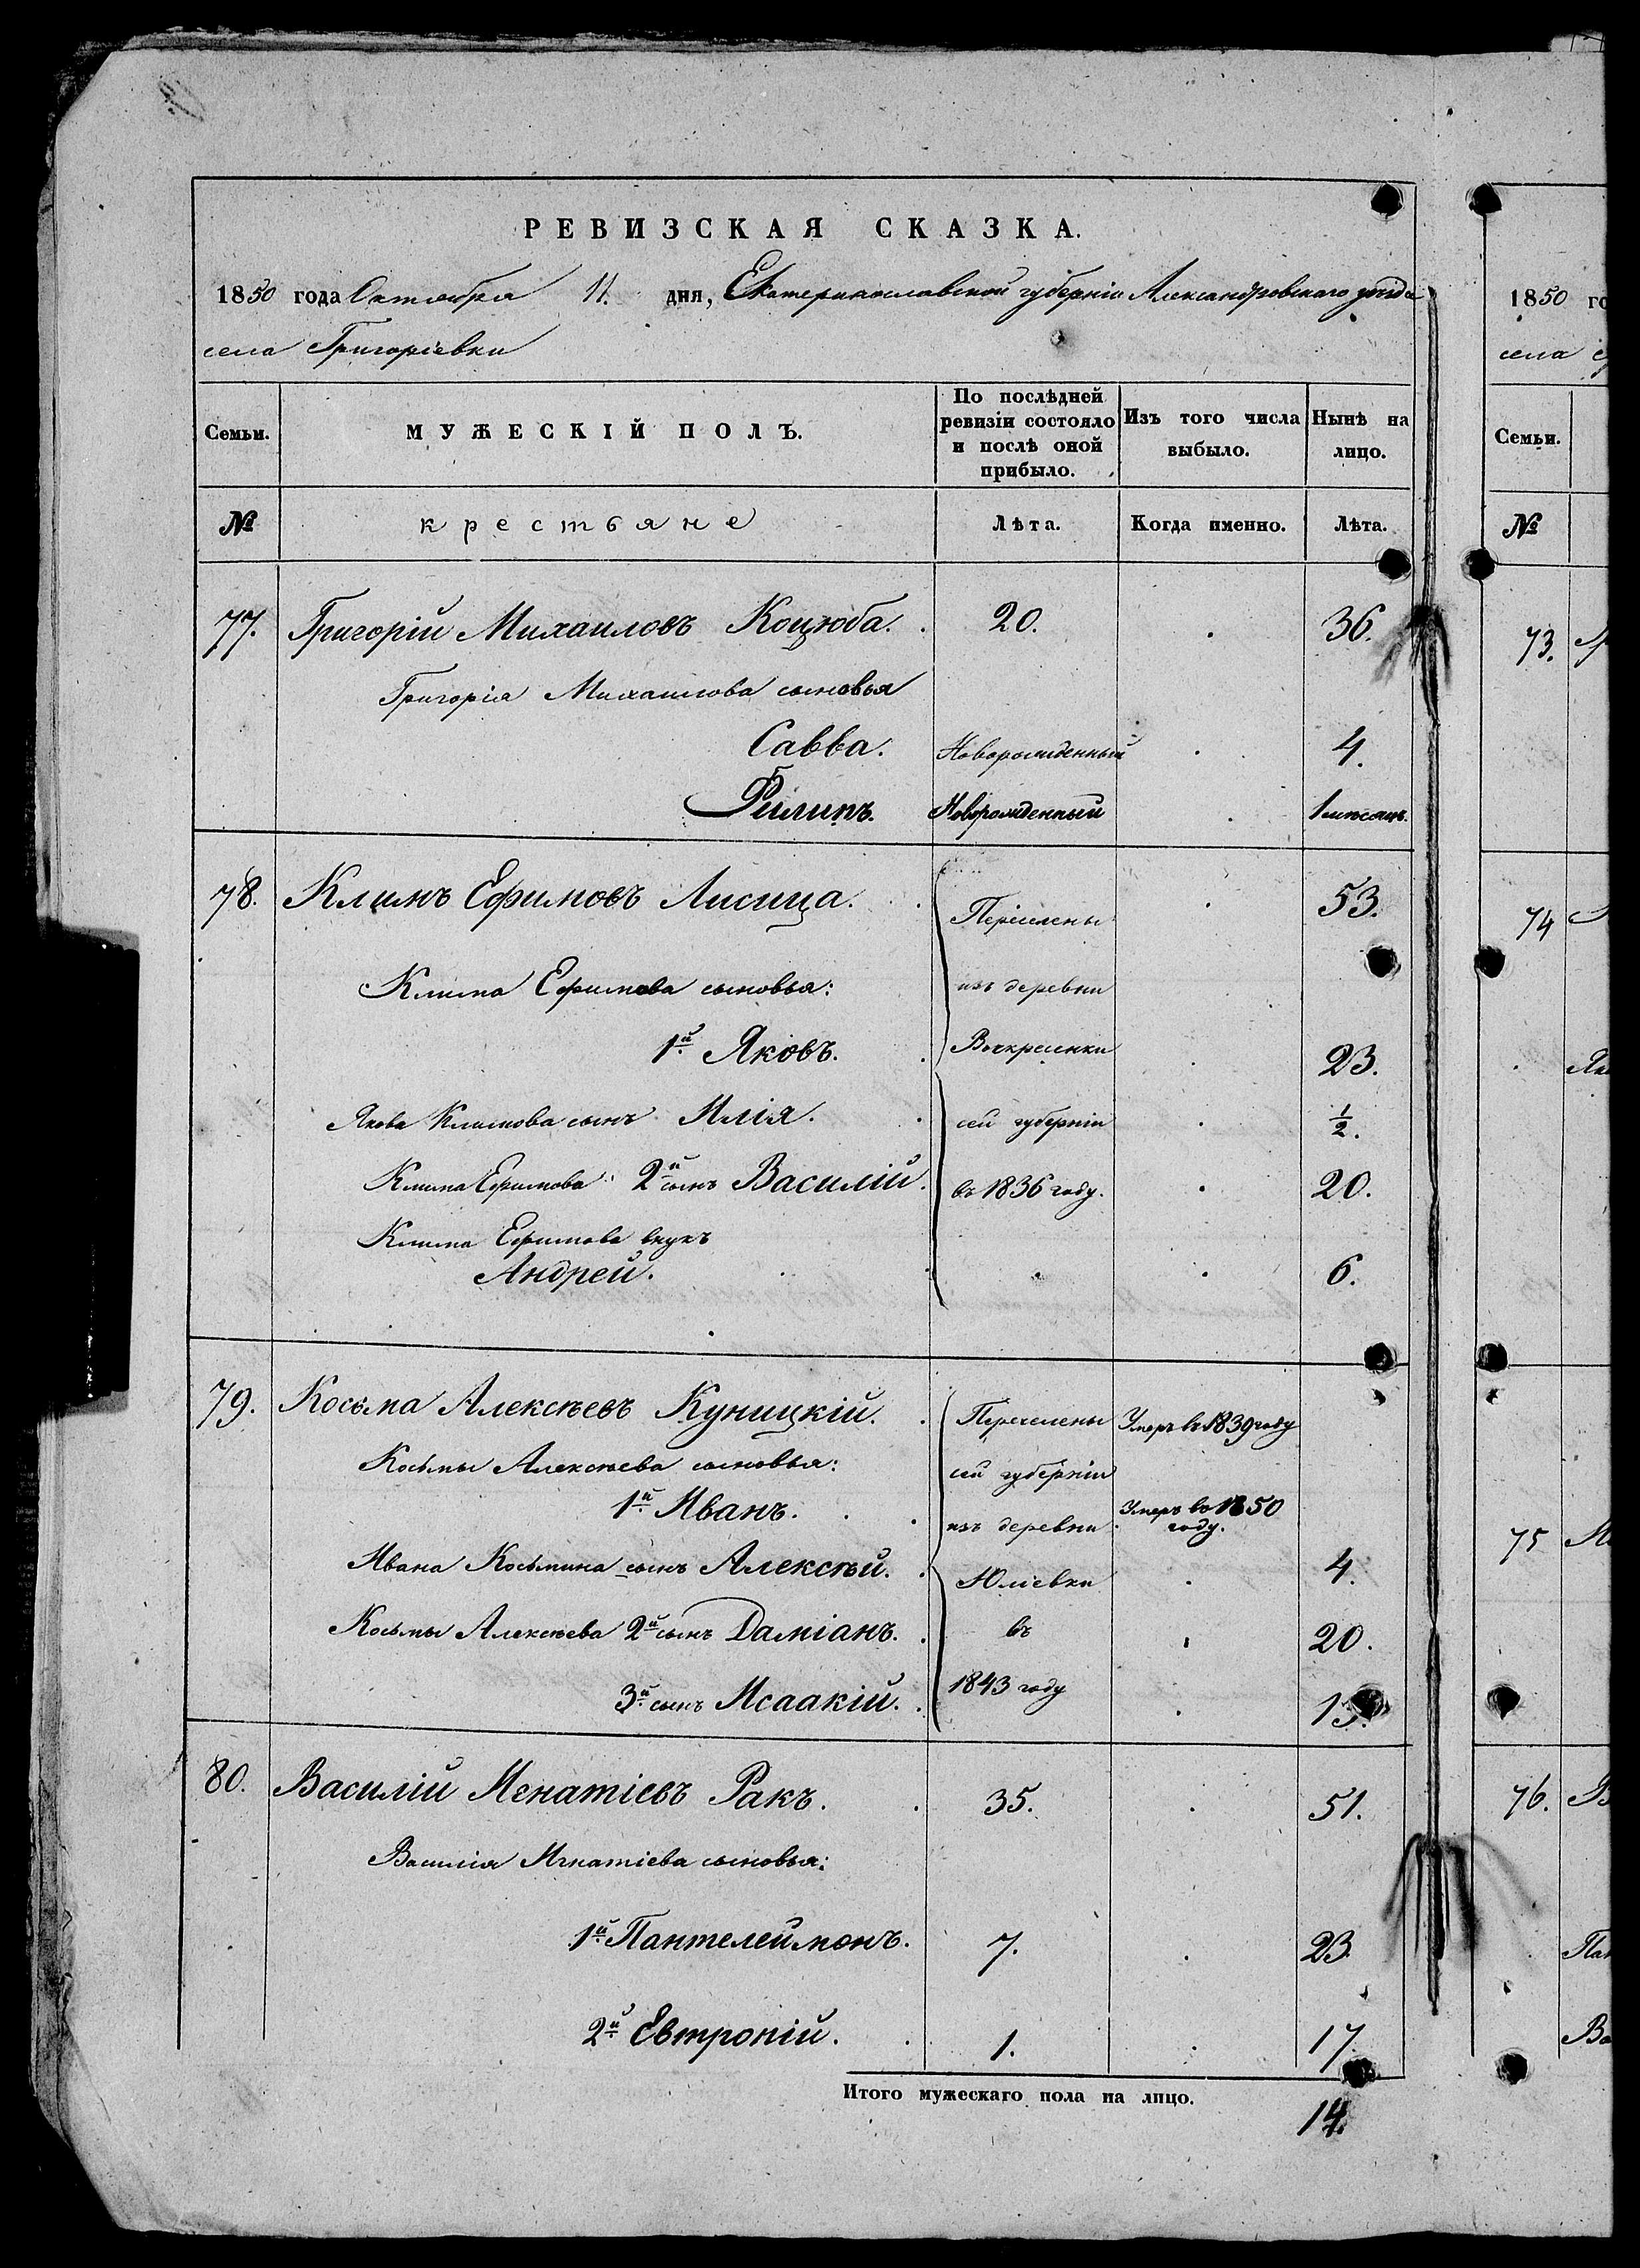 РЕВИЗСКАЯ СКАЗКА.
1850 года Октября 11. дня, Екатеринославской губерніи Александровскаго уѣзда
села Григоріевки
Семьи. МУЖЕСКІЙ ПОЛЪ. По послѣдней ревизіи состояло и послѣ оной прибыло. Изъ того числа выбыло. Нынѣ на лицо.
№ крестьяне Лѣта. Когда именно. Лѣта.
77. Григорій Михаиловъ Коцюба. 20. 36.
Григорія Михаилова сыновья
Савва. Новорожденный 4.
Филипъ. Новорожденный 1 мѣсяцъ.
78. Климъ Ефимовъ Лисица. Переселены 53.
Клима Ефимова сыновья: изъ деревни
1й Яковъ. Воскресенки 23.
Якова Климова сынъ Илія. сей губерніи ½.
Клима Ефимова 2й сынъ Василій. въ 1836 году. 20.
Клима Ефимова внукъ
Андрей. 6.
79. Косьма Алексѣевъ Куницкій. Переселены Умеръ въ 1839 году
Косьмы Алексѣева сыновья: сей губерніи
1й Иванъ. изъ деревни Умеръ въ 1850 году.
Ивана Косьмина сынъ Алексѣй. Юліевки 4.
Косьмы Алексѣева 2й сынъ Даміанъ. въ 20.
3й сынъ Исаакій. 1843 году
80. Василій Игнатіевъ Ракъ. 35. 51.
Василія Игнатіева сыновья:
1й Пантелеймонъ. 7. 23.
2й Евтропій. 1. 17.
Итого мужескаго пола на лицо. 14.
1850 го
села
Семьи.
№
73.
74
75
76.